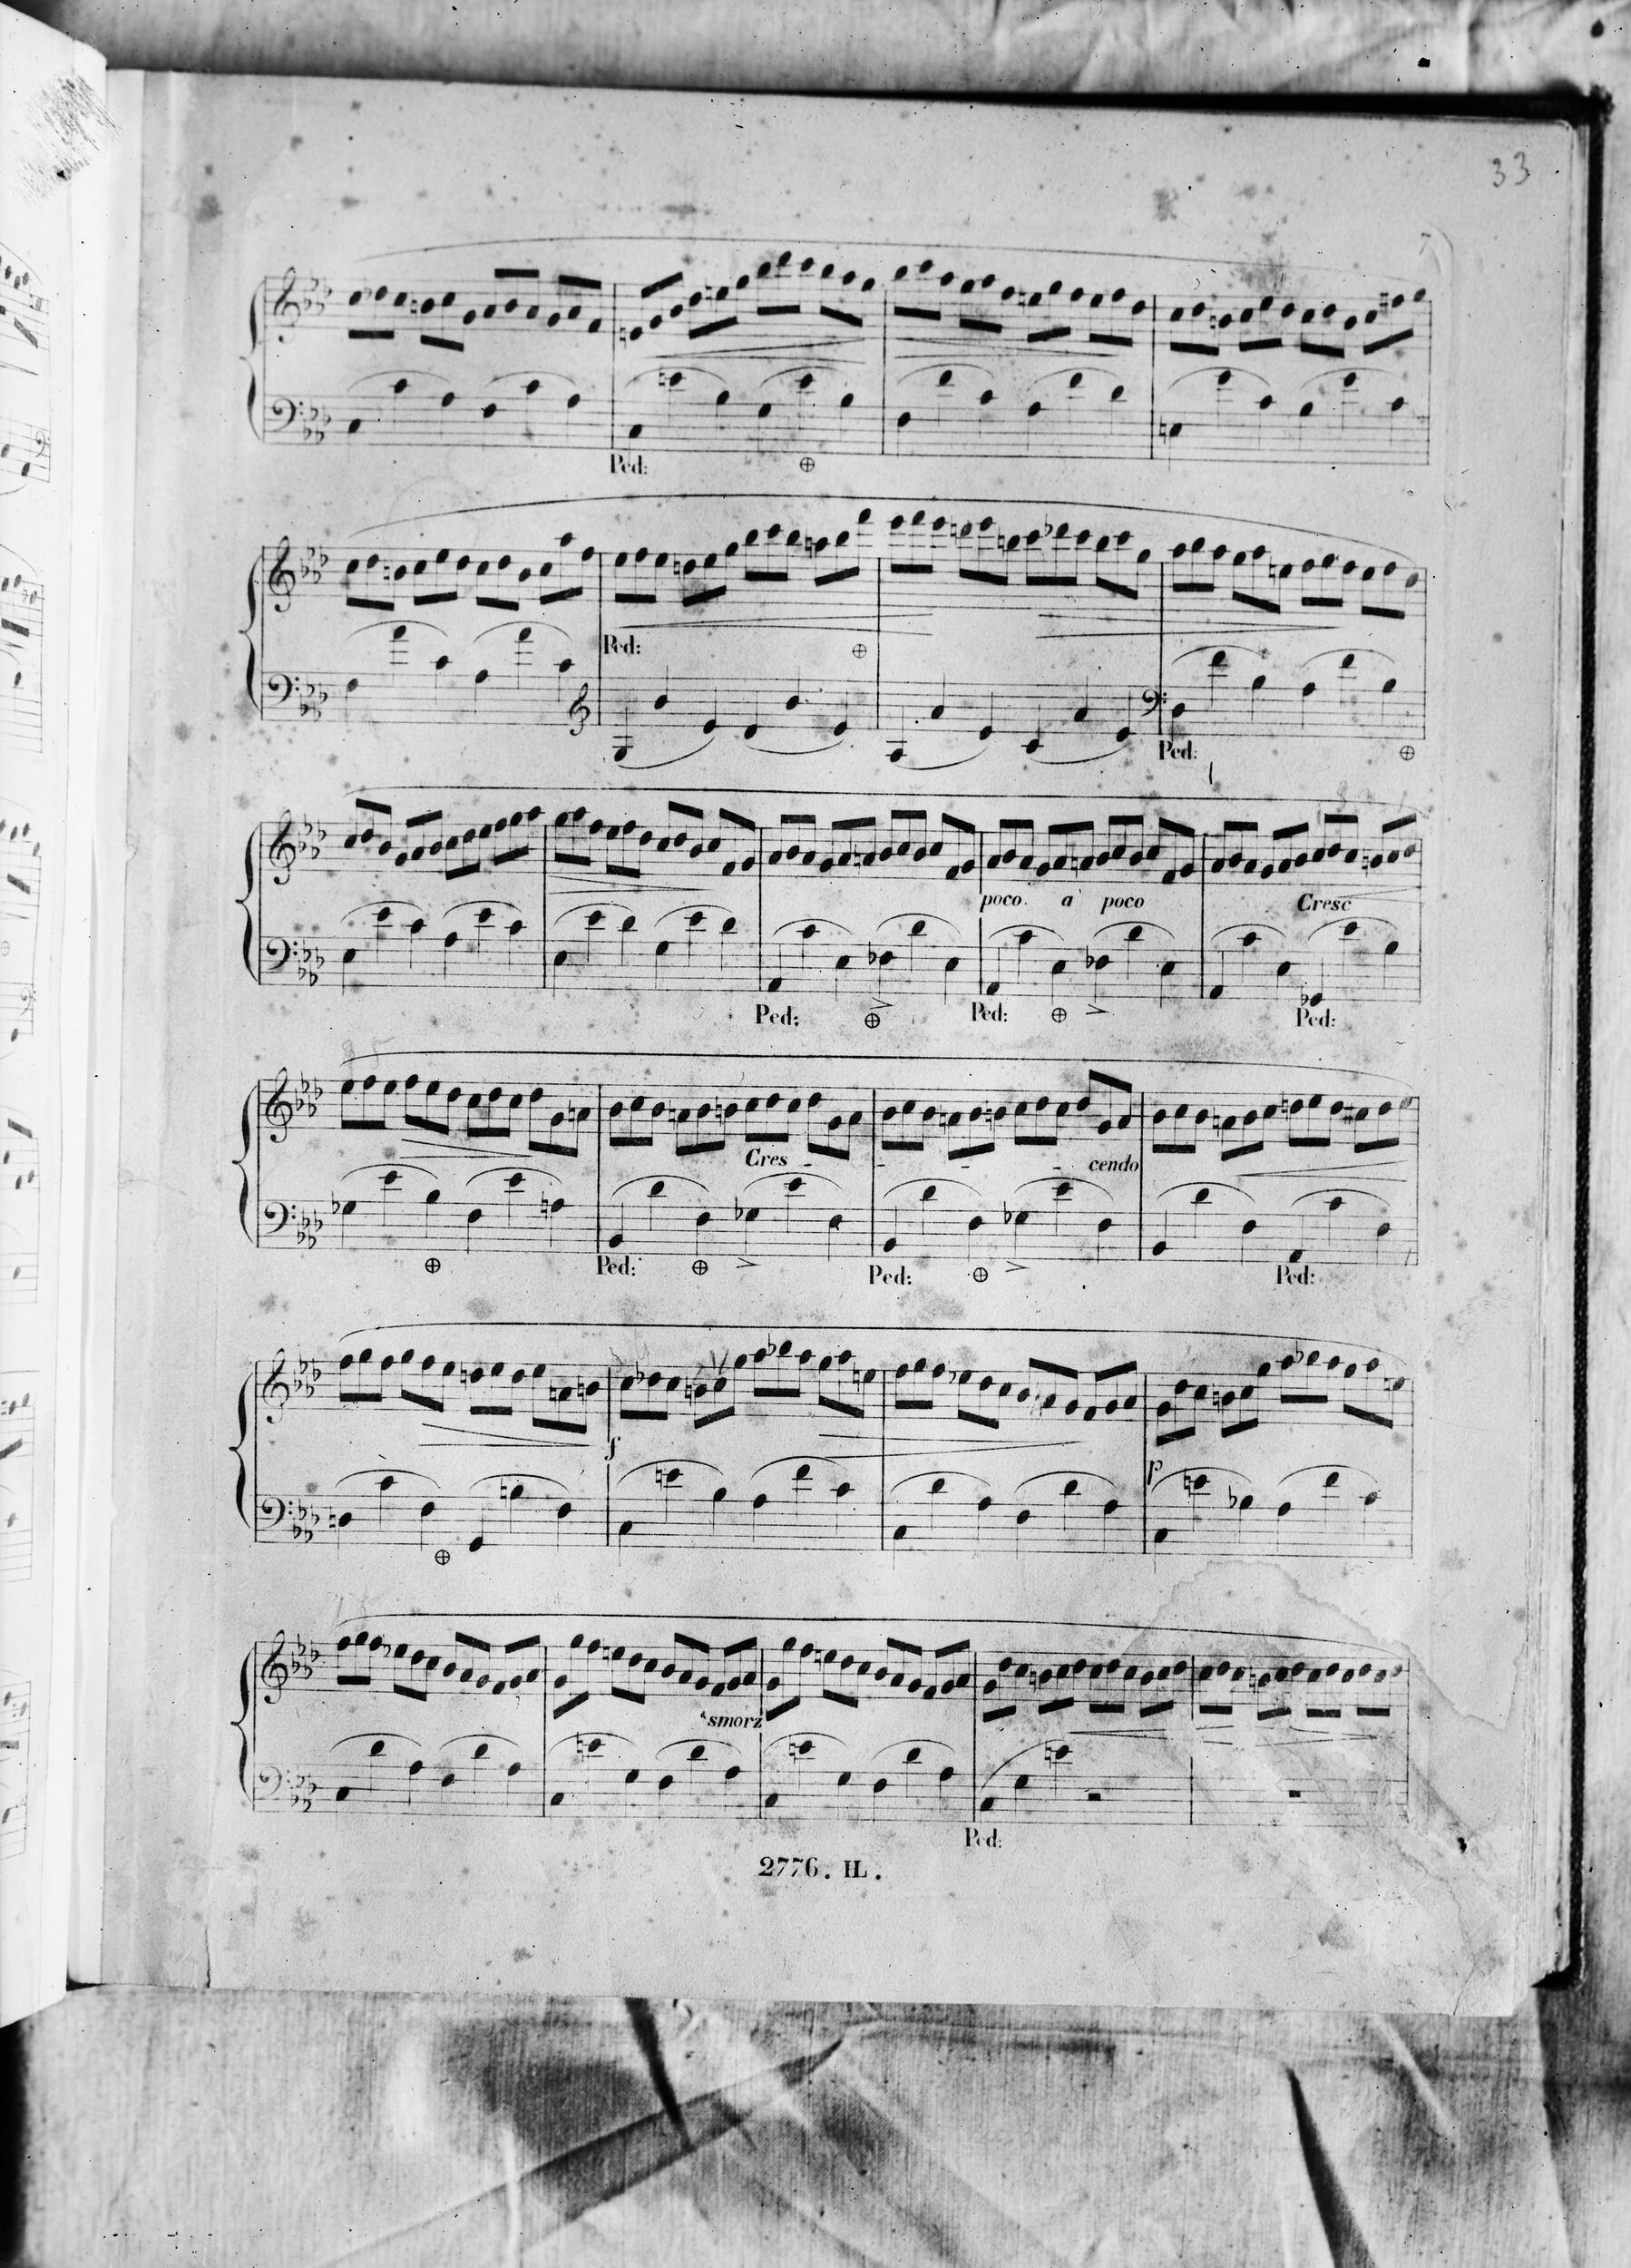 33
7
Ped: ⊕
Ped: ⊕
Ped: ⊕
poco a poco Cresc
Ped: ⊕ Ped: ⊕ Ped:
Cres - - - - cendo
⊕ Ped: ⊕ Ped: ⊕ Ped:
f p
⊕
smorz
Ped:
2776. HL.